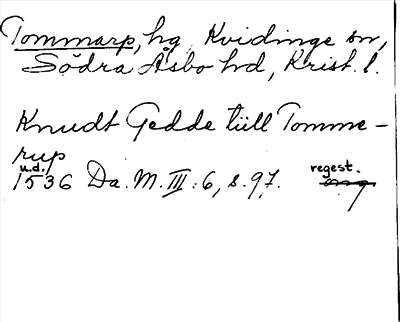 Tommarp, hg, Kvidinge sn,
Södra Åsbo hd, Krist. l.
Knudt Gedde till Tomme-
rup
u.d. regest.
1536 Da. M. III: 6, s. 97.